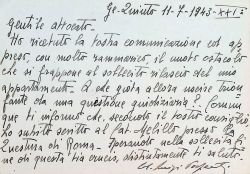 Ge-Quinto 11-7-1943-XXI°
Gentile Avvocato.
Ho ricevuto la vostra comunicazione ed ap
preso, con molto rammarico, il nuovo ostacolo
che si frappone al sollecito rilascio del mio
appartamento. E che gioia allora uscire trion
fante da una questione giudiziaria! Comun
que ti informo che, secondo il vostro consiglio,
ho subito scritto al Pat Metillo presso la
Questura di Roma. Sperando nella sollecita fi
ne di questa via crucis, distintamente vi saluto.
Luigi